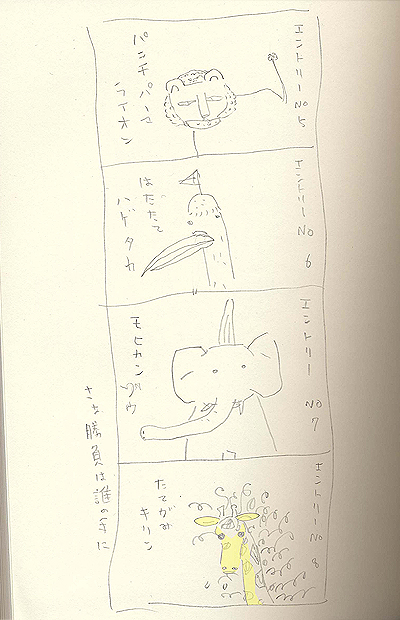 エントリーNo 5
パンチパーマ
ライオン
エントリーNo 6
はたたて
ハゲタカ
エントリー No 7
モヒカンゾウ
エントリーNo 8
たてがみ
キリン
さぁ勝負は誰の手に